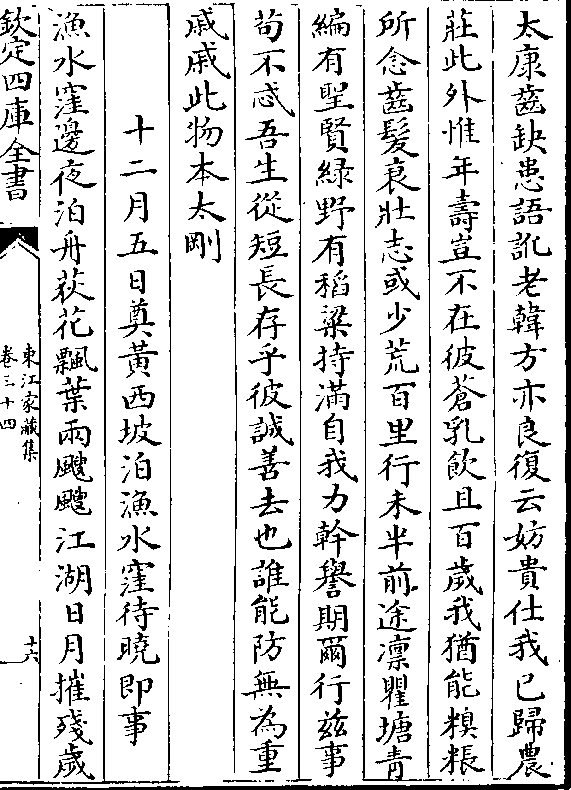 太康齒缺患語訛老韓方亦良復云妨貴仕我已歸農
莊此外惟年壽豈不在彼蒼乳飲且百歲我猶能糗粻
所念齒髮衰壯志或少荒百里行未半前途凛瞿塘青
編有聖賢緑野有稻粱持滿自我力幹譽期爾行兹事
苟不惑吾生從短長存乎彼誠善去也誰能防無為重
戚戚此物本太剛
十二月五日奠黄西坡泊漁水窪待曉即事
漁水窪邊夜泊舟荻花飄葉雨颼颼江湖日月摧殘歲
欽定四庫全書
東江家藏集
卷三十四
十六